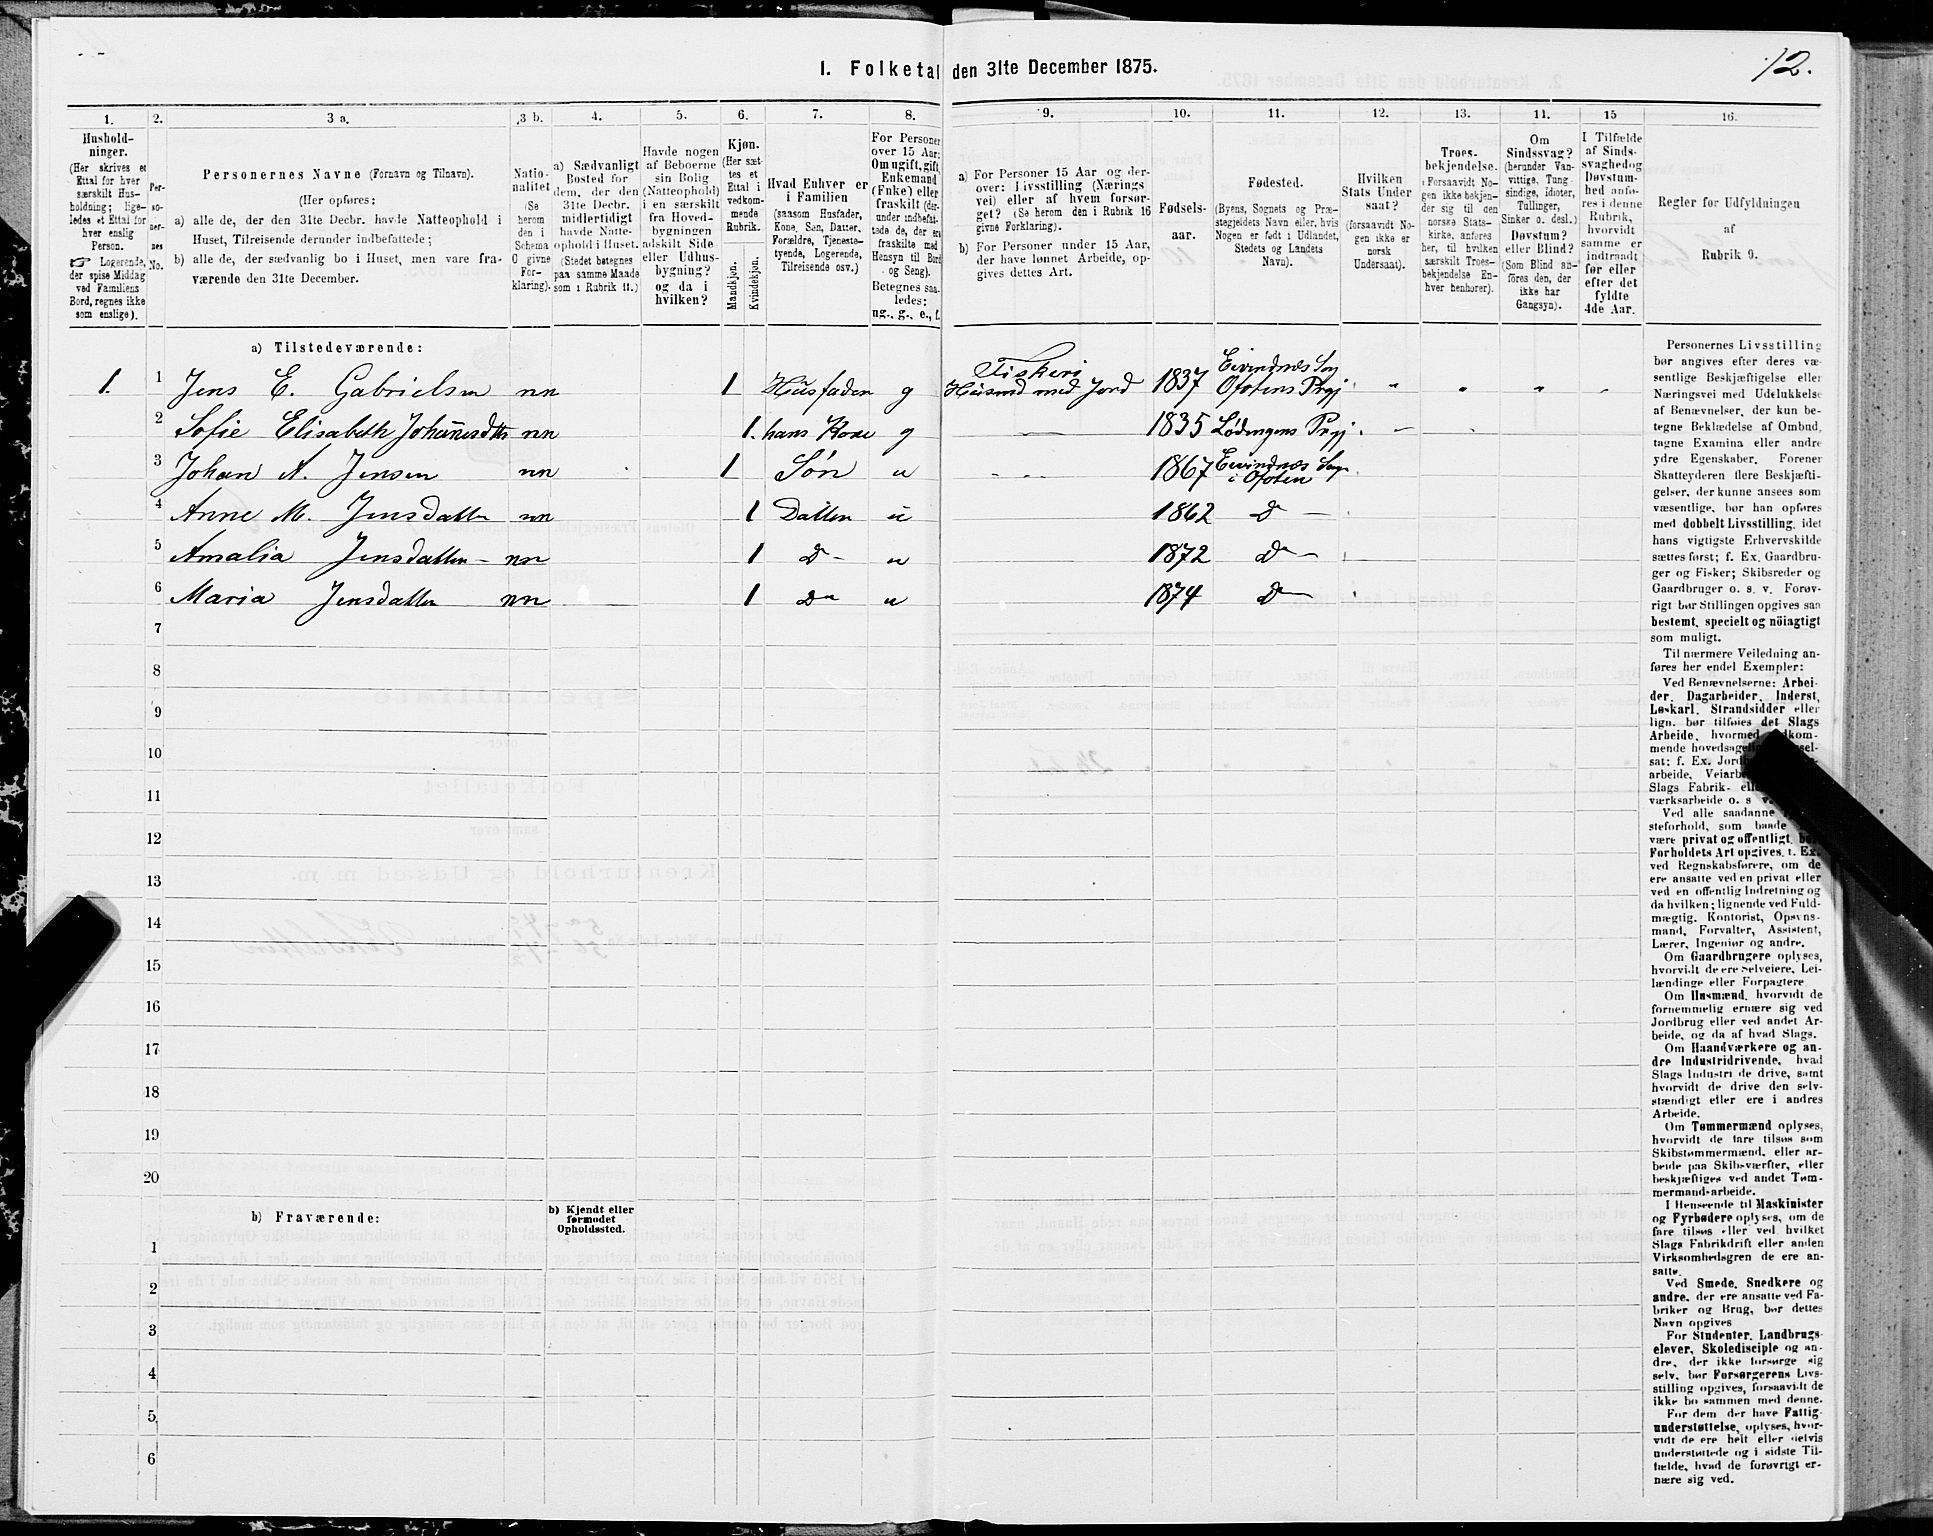 12.
1. Folketal den 31te December 1875.
1. 2. 3 a. 3 b. 4. 5. 6. 7. 8. 9. 10. 11. 12. 13. 14. 15 16.
Hushold-
ninger.
(Her skrives et
Ettal for hver
særskilt Hus-
holdning; lige-
ledes et Ettal for
hver enslig
Person.
☞ Logerende,
der spise Middag
ved Familiens
Bord, regnes ikke
som enslige).
Per-
so-
ner-
nes
No.
Personernes Navne (Fornavn og Tilnavn).
(Her opføres:
a) alle de, der den 31te Decbr. havde Natteophold i
Huset, Tilreisende derunder indbefattede;
b) alle de, der sædvanlig bo i Huset, men vare fra-
værende den 31te December.
Natio-
nalitet
(Se
herom
den i
Schema
O givne
For-
klaring).
a) Sædvanligt
Bosted for
dem, der den
31te Decbr.
midlertidigt
havde Natte-
ophold i Huset.
(Stedet betegnes
paa samme Maade
som i Rubrik 11.)
Havde nogen
af Beboerne
sin Bolig
(Natteophold)
i en særskilt
fra Hoved-
bygningen
adskilt Side-
eller Udhus-
bygning?
og da i
hvilken?
Kjøn.
(Her sæt-
tes et
Ettal i
vedkom-
mende
Rubrik.
Mandkjøn.
Kvindekjøn.
Hvad Enhver er
i Familien
(saasom Husfader,
Kone, Søn, Datter,
Forældre, Tjeneste-
tyende, Logerende,
Tilreisende osv.)
For Personer
over 15 Aar:
Om ugift, gift,
Enkemand
(Enke) eller
fraskilt (der-
under indbefat-
tede de, der ere
fraskilte med
Hensyn til Bord
og Seng).
Betegnes saa-
ledes:
ug., g., e., f.
a) For Personer 15 Aar og der-
over: Livsstilling (Nærings
vei) eller af hvem forsør-
get? (Se herom den i Rubrik 16
givne Forklaring).
b) For Personer under 15 Aar,
der have lønnet Arbeide, op-
gives dettes Art.
Fødsels-
aar.
Fødested.
(Byens, Sognets og Præ-
stegjeldets Navn eller, hvis
Nogen er født i Udlandet,
Stedets og Landets
Navn).
Hvilken
Stats Under
saat?
(forsaavidt No-
gen ikke er
norsk
Undersaat).
Troes-
bekjendelse.
(Forsaavidt No-
gen ikke bekjen-
der sig til den
norske Stats-
kirke, anføres
her, til hvilken
særskilt Troes-
bekjendelse En-
hver henhører).
Om
Sindssvag?
(herunder Van-
vittige, Tung-
sindige, idioter,
Tullinger,
Sinker o. desl.)
Døvstum?
eller Blind?
(Som Blind an-
föres den, der
ikke har
Gangsyn).
I Tilfælde
af Sinds-
svaghed og
Døvstum-
hed anfø-
res i denne
Rubrik,
hvorvidt
samme er
indtraadt
før eller
efter det
fyldte
4de Aar.
Regler for Udfyldningen
af
Rubrik 9.
a) Tilstedeværende:
1. 1 Jens E. Gabrielsen nn 1 Husfader g Fiskeri Husmd med Jord 1837 Eivindnæs Sog Ofotens Prgj
2 Sofie Elisabeth Johannesdtr nn 1. hans Kone g 1835 Lødingens Prgj.
3 Johan A. Jensen nn 1 Søn u 1867 Eivindnæs Sogn i Ofoten
4 Anne M. Jensdatter nn 1 Datter u 1862 Do
5 Amalia Jensdatter nn 1 Do u 1872 Do
6 Maria Jensdatter nn 1 Do u 1874 Do
7
8
9
10
11
12
13
14
15
16
17
18
19
20
b) Fraværende:
b) Kjendt eller
førmodet
Opholdssted.
1
2
3
4
5
6
Personernes Livsstilling
bør angives efter deres væ-
sentlige Beskjæftigelse eller
Næringsvei med Udelukkelse
af Benævnelser, der kun be-
tegne Beklædelse af Ombud,
tagne Examina eller andre
ydre Egenskaber. Forener
Skatteyderen flere Beskjæfti-
gelser, der kunne ansees som
væsentlige, bør han opføres
med dobbelt Livsstilling, idet
hans vigtigste Erhvervskilde
sættes først; f. Ex. Gaardbru-
ger og Fisker; Skibsreder og
Gaardbruger o. s. v. Forøv-
rigt bør Stillingen opgives saa
bestemt, specielt og nöiagtigt
som muligt.
Til nærmere Veiledning an-
føres her endel Exempler:
Ved Benævnelserne: Arbei-
der, Dagarbeider, Inderst,
Løskarl, Strandsidder eller
lign. bør tilføies det Slags
Arbeide, hvormed
mende
sat; f. Ex.
arbeide,
Slags Fabrik-
værksarbeide o. s v.
Ved alle saadanne
steforhold, som baade
være privat og offentligt,
Forholdets Art opgives, f. Ex.
ved Regnskabsførere, om de
ere ansatte ved en privat eller
ved en offentlig Indretning og
da hvilken; lignende ved Fuld-
mægtig, Kontorist, Opsyns-
mand, Forvalter, Assistent,
Lærer, Ingeniør og andre.
Om Gaardbrugere oplyses,
hvorvidt de ere Selveiere, Lei-
lændinge eller Forpagtere.
Om Husmænd, hvorvidt de
fornemmelig ernære sig ved
Jordbrug eller ved andet Ar-
beide, og da af hvad Slags.
Om Haandværkere og an-
dre Industridrivende, hvad
Slags Industri de drive, samt
hvorvidt de drive den selv-
stændigt eller ere i andres
Arbeide.
Om Tømmermænd oplyses,
hvorvidt de fare tilsøs som
Skibstømmermænd, eller ar-
beide paa Skibsværfter, eller
beskjæftiges ved andet Tøm-
mermand-arbeide.
I Henseende til Maskinister
og Fyrbødere oplyses, om de
fare tilsøs eller ved hvilket
Slags Fabrikdrift eller anden
Virksomhedsgren de ere an-
satte.
Ved Smede, Snedkere og
andre, der ere ansatte ved Fa-
briker og Brug, bør dettes
Navn opgives
For Studenter, Landbrugs-
elever, Skoledisciple og an-
dre, der ikke forsørge sig
selv, bør Forsørgerens Livs-
stilling opgives, forsaavidt de
ikke bo sammen med denne.
For dem der have Fattig-
understøttelse, oplyses, hvor-
vidt de ere helt eller delvis
understøttede og i sidste Til-
fælde, hvad de forøvrigt er-
nære sig ved.